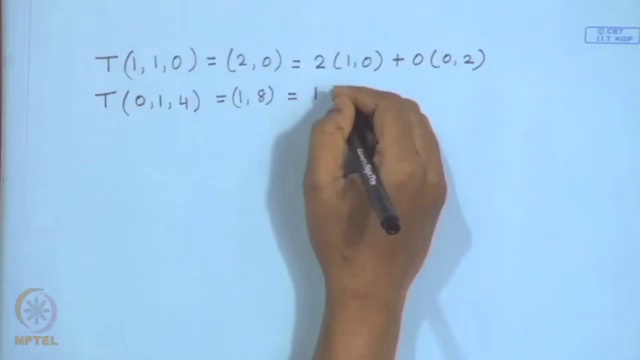 © CET
I.I.T. KGP
T(1,1,0) = (2,0) = 2(1,0) + 0(0,2)
T(0,1,4) = (1,8) = 1
NPTEL